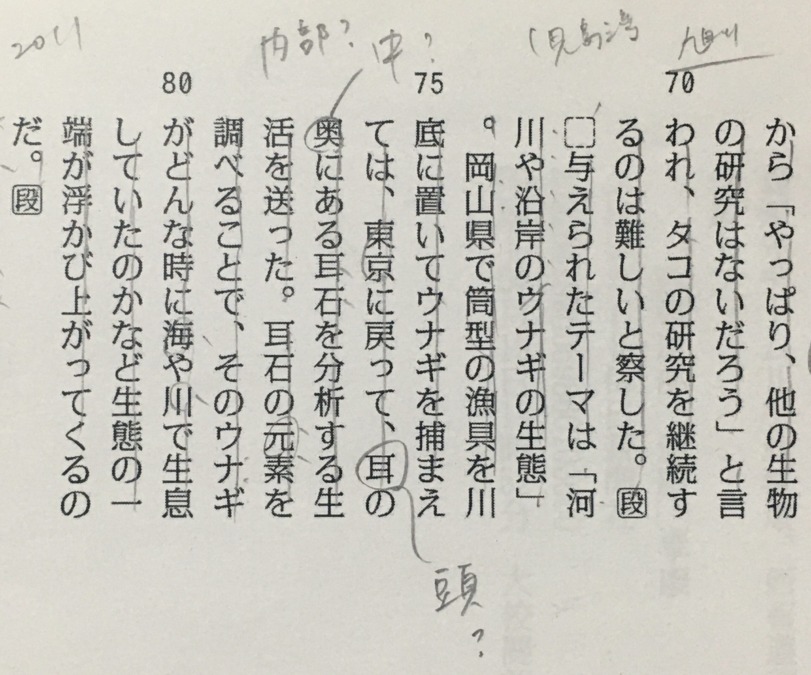 旭川
児島湾
中?
内部?
2011
70
75
80
から「やっぱり、他の生物
の研究はないだろう」と言
われ、タコの研究を継続す
るのは難しいと察した。段
与えられたテーマは「河
川や沿岸のウナギの生態」
。岡山県で筒型の漁具を川
底に置いてウナギを捕まえ
ては、東京に戻って、耳の
奥にある耳石を分析する生
活を送った。耳石の元素を
調べることで、そのウナギ
がどんな時に海や川で生息
していたのかなど生態の一
端が浮かび上がってくるの
だ。段
頭?